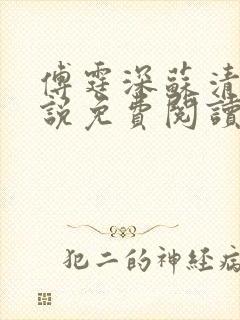 傅霆深蘇清
說免費閱讀
犯二的神経病